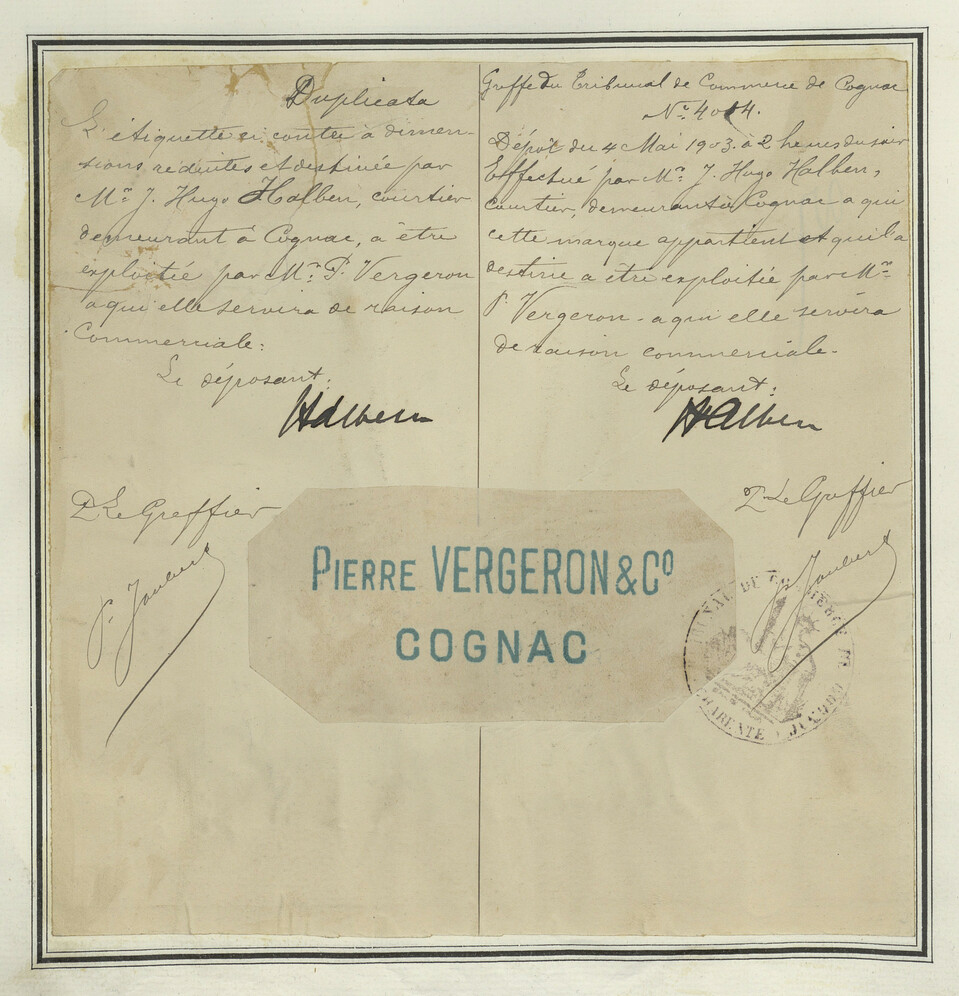 Duplicata
L'étiquette ci contre à dimen-
sions réduites est destinée par
Mr. J. Hugo Halben, courtier
demeurant à Cognac, a être
exploitée par Mr. P. Vergeron
a qui elle servira de raison
Commerciale:
Le déposant:
Halben
P. Le Greffier
P. Joubert
Greffe du Tribunal de Commerce de Cognac
No. 4014.
Dépôt du 4 Mai 1903. à 2 heures du soir
Effectué par Mr. J. Hugo Halben,
Courtier, demeurant à Cognac a qui
cette marque appartient et qui la
destine a être exploitée par Mr.
P. Vergeron - a qui elle servira
de raison commerciale.
Le déposant:
Halben
P. Le Greffier
P. Joubert
PIERRE VERGERON & Co
COGNAC
TRIBUNAL DE COMMERCE DE COGNAC
CHARENTE